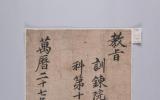 教旨
訓鍊院
科第十
萬曆二十七